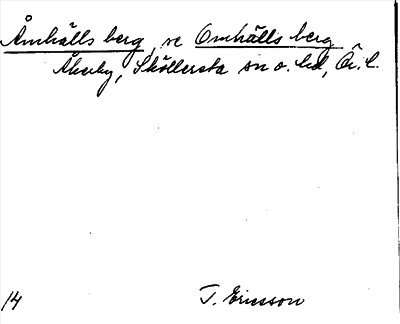 Åmhälls berg, se Omhälls berg
Åkerby, Sköllersta sn o. hd, Ör. l.
14 T. Ericsson